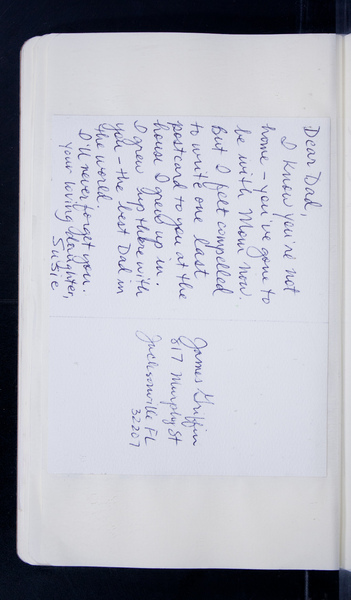 Dear Dad,
I know you're not
home – you've gone to
be with Mom now.
But I felt compelled
to write one last
postcard to you at the
house I grew up in.
I grew up there with
you – the best Dad in
the world.
I'll never forget you.
Your loving daughter,
Susie
James Griffin
817 Murphy St
Jacksonville FL
32207